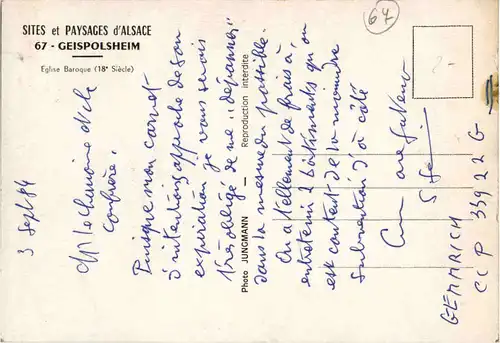 SITES et PAYSAGES d'ALSACE
67 - GEISPOLSHEIM
Eglise Baroque (18e Siècle)
67
Photo JUNGMANN — Reproduction interdite
3 Sept 84
M le chanoine et ch
confrère,
Puisque mon carnet
d'intentions approche de son
expiration je vous serais
très obligé de me "dépanner"
dans la mesure du possible.
On a tellement de frais à
entretenir 2 bâtiments qu'on
est content de la moindre
subvention d'à côté
Cum
GEMMRICH
CCP 33922 G